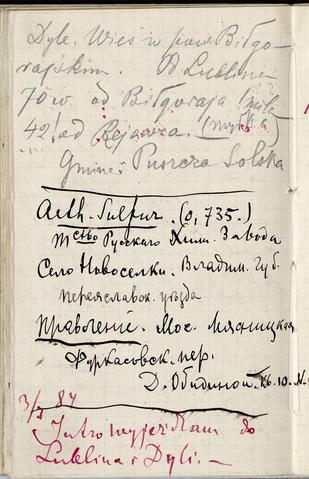 Dyle. Wieś w pow. Biłgo-
rajskim. Od Lublina
70 w. od Biłgoraja
42! od Rejowca.
Gmina: Puszcza Solska
Aeth. Sulfur. (0,735.)
Т-ство Русскаго Хим. Завода
Село Новоселки. Владим. Губ.
переяславск. уѣзда
Правленіе. Мос. Мясницкая
Фуркасовск. пер.
Д. Обидиной. кв. 10.
3/X 84
Jutro wyjeżdżam do
Lublina i Dyli. —